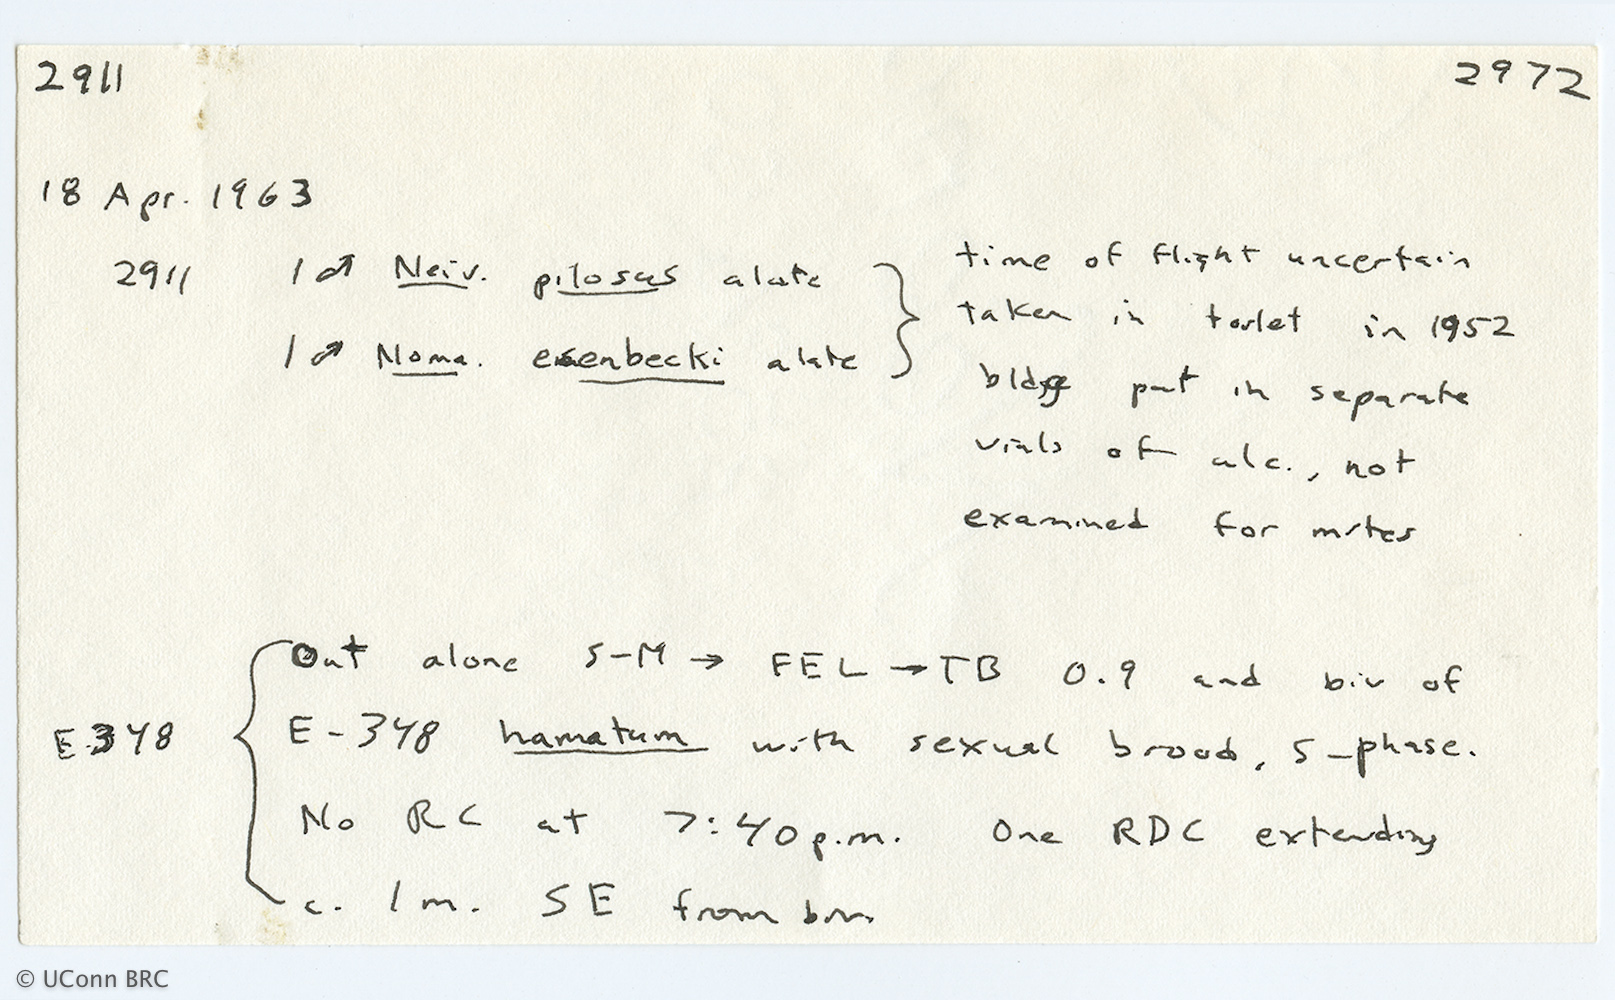 2911 2972
18 Apr. 1963
2911 1 ♂ Neiv. pilosus alate
1 ♂ Noma. esenbecki alate
time of flight uncertain
taken in toilet in 1952
bldg put in separate
vials of alc., not
examined for mites
E-348
Out alone S-M → FEL → TB 0.9 and biv of
E-348 hamatum with sexual brood, S-phase.
No RC at 7:40 p.m. One RDC extending
c. 1 m. SE from biv.
© UConn BRC